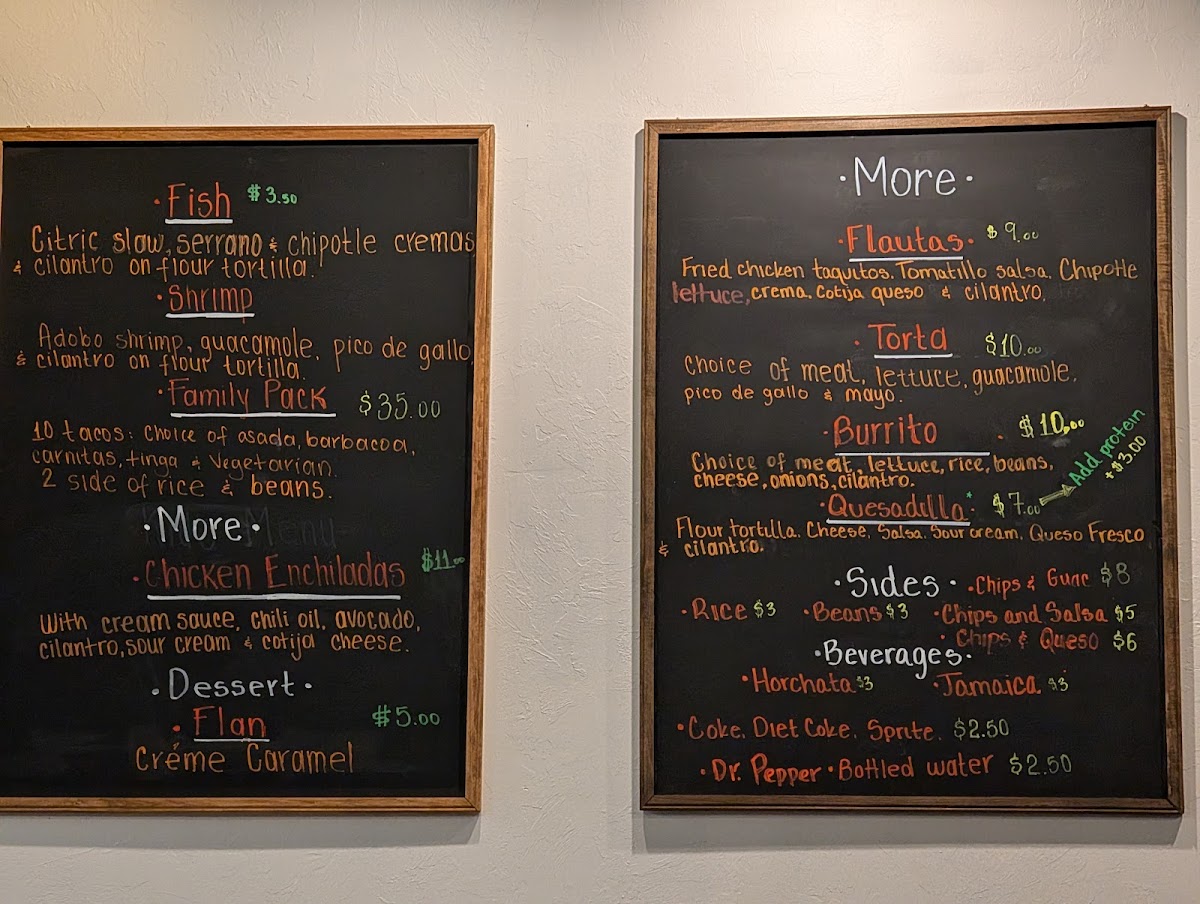 ·Fish $3.50
Citric slaw, serrano & chipotle cremas
& cilantro on flour tortilla.
·Shrimp
Adobo shrimp, guacamole, pico de gallo,
& cilantro on flour tortilla.
·Family Pack $35.00
10 tacos: choice of asada, barbacoa,
carnitas, tinga & vegetarian.
2 side of rice & beans.
·More·
·Chicken Enchiladas $11.00
With cream sauce, chili oil, avocado,
cilantro, sour cream & cotija cheese.
·Dessert·
·Flan $5.00
Créme Caramel
·More·
·Flautas· $9.00
Fried chicken taquitos. Tomatillo salsa. Chipotle
lettuce, crema. Cotija queso & cilantro.
·Torta $10.00
Choice of meat, lettuce, guacamole,
pico de gallo & mayo.
·Burrito · $10.00
Choice of meat, lettuce, rice, beans,
cheese, onions, cilantro.
·Quesadilla·* $7.00 Add protein
+$3.00
Flour tortilla. Cheese, Salsa. Sour cream, Queso Fresco
& cilantro.
·Sides· ·Chips & Guac $8
·Rice $3 ·Beans $3 ·Chips and Salsa $5
·Chips & Queso $6
·Beverages·
·Horchata $3 ·Jamaica $3
·Coke, Diet Coke, Sprite. $2.50
·Dr. Pepper ·Bottled water $2.50